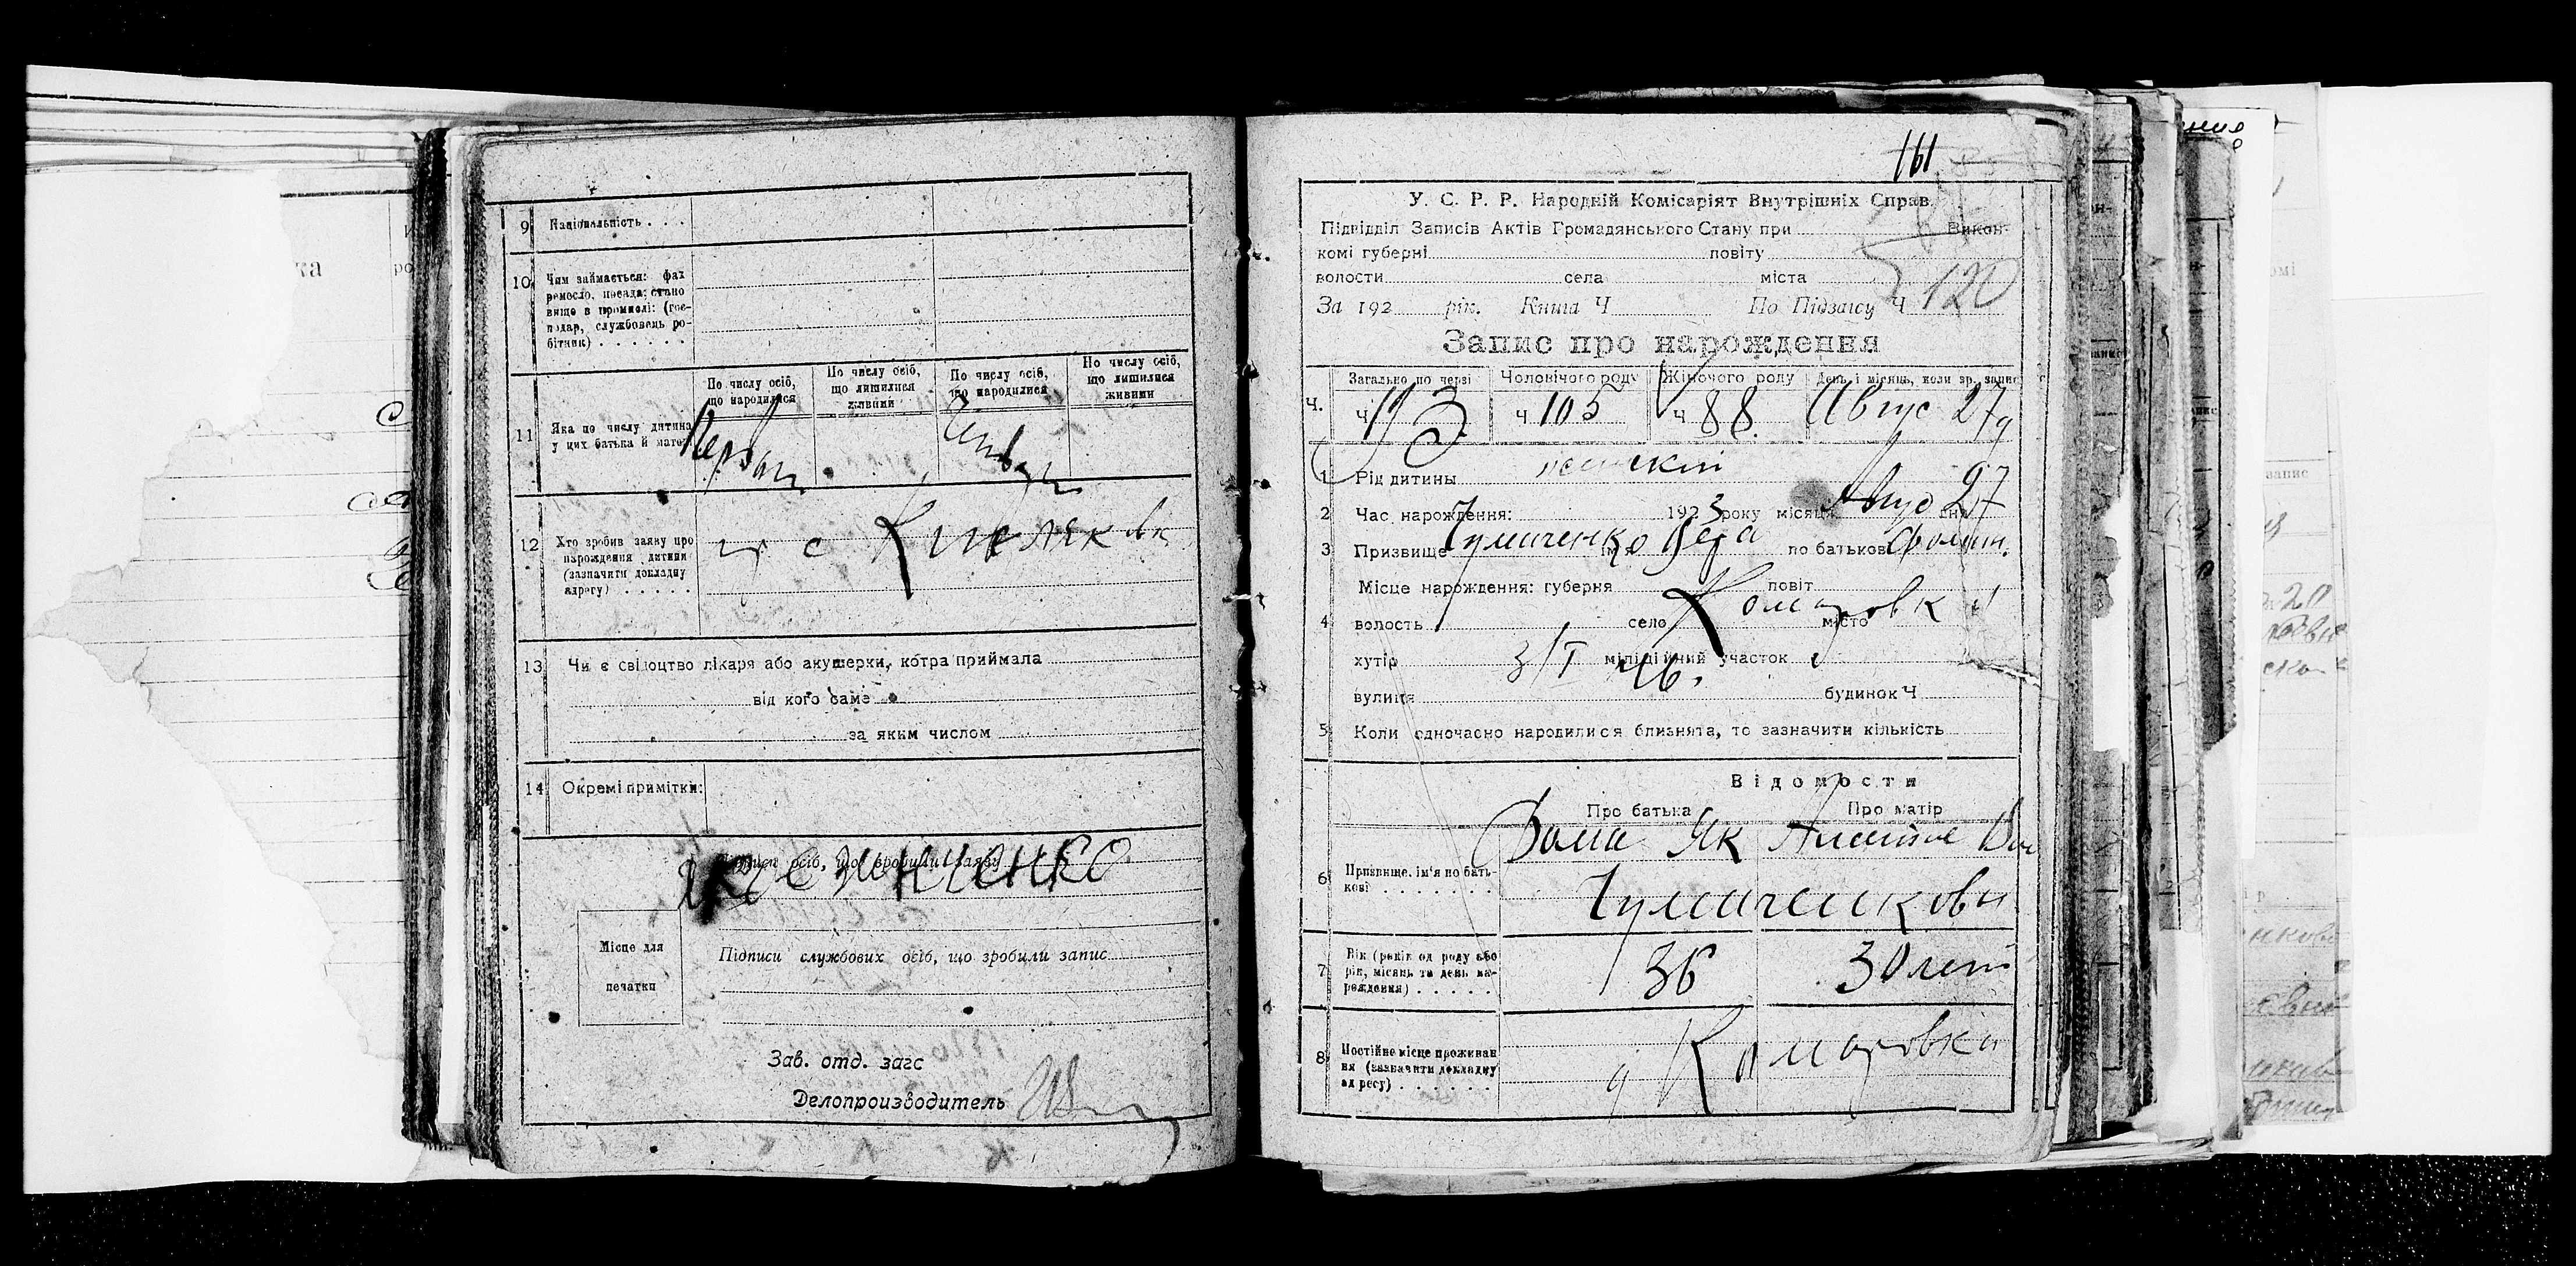 9 Національність . . .
10 Чим займається: фах
ремесло, посада; стано
вище в промислі: (гос-
подар, службовець ро-
бітник) . . . . . .
По числу осіб,
що народилися
По числу осіб,
що лишилися
живими
По числу осіб,
що народилися
По числу осіб,
що лишилися
живими
11 Яка по числу дитина
у цих батька й матері
12 Хто зробив заяву про
нарождення дитини
(зазначити докладну
адресу) . . . . .
с
13 Чи є свідоцтво лікаря або акушерки, котра приймала
від кого саме
за яким числом
14 Окремі примітки:
Підписи осіб, що зробили заяву
Місце для
печатки
Підписи службових осіб, що зробили запис
Зав. отд. загс
Делопроизводитель
161
У. С. Р. Р. Народній Комісаріят Внутрішніх Справ.
Підвідділ Записів Актів Громадянського Стану при Викон-
комі губерні повіту
волости села міста
120
За 192 рік. Книга Ч По Підзагсу Ч
Запис про нарождення
Загально по черзі Чоловічого роду Жіночого роду День і місяць, коли зр. запис
Ч. Ч 193 Ч 105 Ч 88. Авгус 27
1 Рід дитини женский
2 Час нарождення: 1923 року місяця Авгус дня 27
3 Призвище Чумаченко ім'я Вера по батькові
4 Місце нарождення: губерня повіт
волость село Комаровка місто
хутір міліційний участок
вулиця будинок Ч
5 Коли одночасно народилися близнята, то зазначити кількість
Відомости
Про батька Про матір
6 Призвище, ім'я по бать-
кові . . . . . . . .
Фома Як
Чумаченковы
7 Вік (років од роду або
рік, місяць та день на-
рождення) . . . . .
36 30 лет
8 Постійне місце проживан
ня (зазначити докладну
адресу) . . . . . .
Комаровка